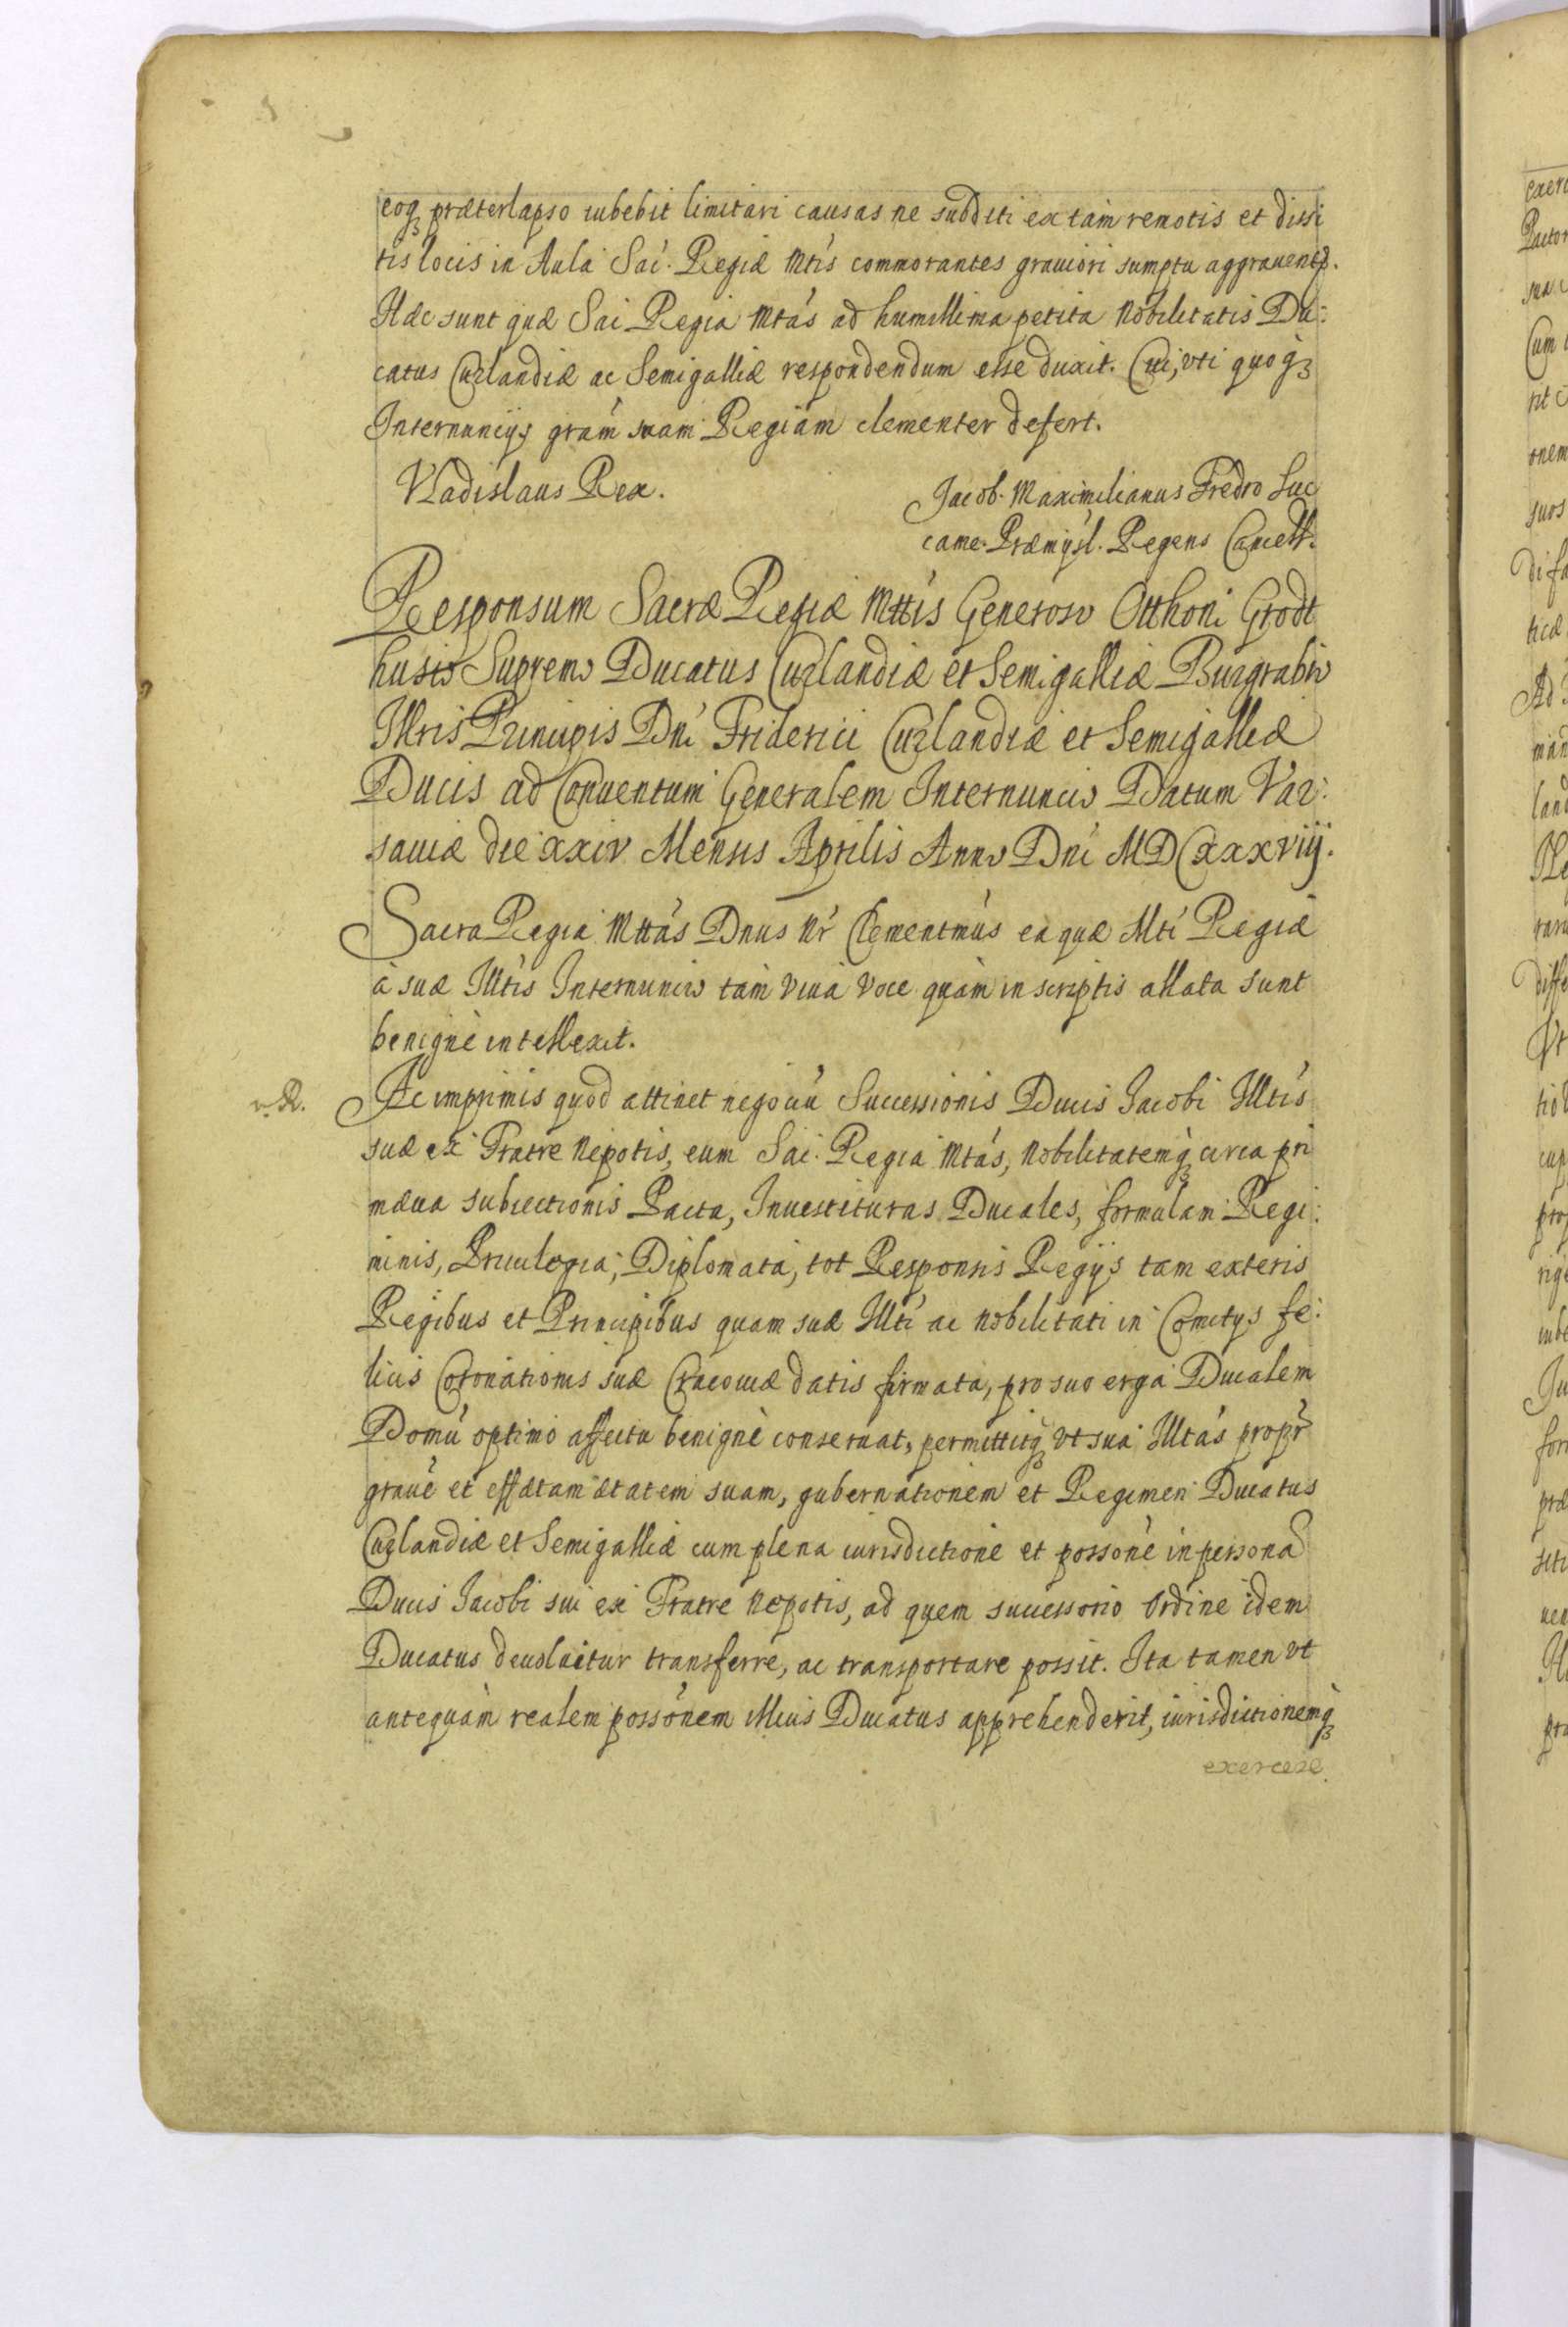 eoq₃ præterlapso iubebit limitari causas ne subditi ex tàm remotis et dissi
tis locis in Aula Sac̍. Regiæ Mt̍is commorantes grauiori sumptu aggrauentr̍.
Hæc sunt quæ Sac̍ Regia Mta̍s ad humillima petita Nobilitatis Du:
catus Curlandiæ ac Semigalliæ respondendum esse duxit. Cui, vti quoq₃
Internuncijs gra̍m suam Regiam clementer defert.
Vladislaus Rex.
Jacob. Maximilianus Fredro Suc
came. Præmÿsl. Regens Cancell.
Responsum Sacræ Regiæ Mtti̍s Generoso Otthoni Grodt
husio Supremo Ducatus Curlandiæ et Semigalliæ Burgrabio
Illris Principis Dni̍ Friderici Curlandiæ et Semigalliæ
Ducis ad Conuentum Generalem Internuncio Datum Var:
sauiæ die xxiv Mensis Aprilis Anno Dni̍ MDCxxxviij.
Sacra Regia Mtta̍s Dnus Nr̍ Clementm̍us ea quæ Mti̍ Regiæ
à suæ Illti̍s Internuncio tàm viua voce quàm in scriptis allata sunt
benignè intellexit.
v. R.
Ac imprimis quod attinet negociu̍ Successionis Ducis Jacobi Illti̍s
suæ ex Fratre Nepotis, eum Sac̍. Regia Mta̍s, Nobilitatemq₃ circa pri
mæua subiectionis Pacta, Inuestituras Ducales, formulam Regi:
minis, Priuilegia, Diplomata, tot Responsis Regijs tam exteris
Regibus et Principibus quam suæ Illti̍ ac Nobilitati in Comitijs fe:
licis Coronationis suæ Cracouiæ datis firmata, pro suo erga Ducalem
Domu̍ optimo affectu benignè conseruat, permittitq₃ vt sua Illta̍s propr̍
graue̍ et effætam ætatem suam, gubernationem et Regimen Ducatus
Curlandiæ et Semigalliæ cum plena iurisdictione et posso̍ne in persona
Ducis Jacobi sui ex Fratre Nepotis, ad quem successorio ordine idem
Ducatus deuoluitur transferre, ac transportare possit. Ita tamen vt
antequàm realem posso̍nem illius Ducatus apprehenderit, iurisdictionemq₃
exercere.